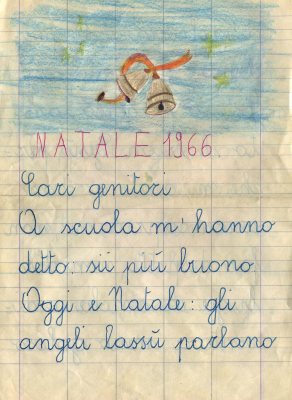 NATALE 1966
Cari genitori
A scuola m'hanno
detto: sii più buono
Oggi e Natale: gli
angeli lassù parlano